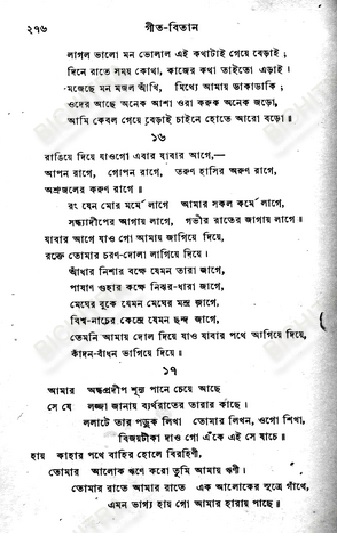 ২৭৬ গীত-বিতান
লাগল ভালো মন ভোলাল এই কথাটাই গেয়ে বেড়াই ;
দিনে রাতে সময় কোথা, কাজের কথা তাইতো এড়াই ।
মজেছে মন মজল আঁখি, মিথ্যে আমায় ডাকাডাকি ;
ওদের আছে অনেক আশা ওরা করুক অনেক জড়ো,
আমি কেবল গেয়ে বেড়াই চাইনে হোতে আরো বড়ো ॥
১৬
রাঙিয়ে দিয়ে যাওগো এবার যাবার আগে,—
আপন রাগে, গোপন রাগে, তরুণ হাসির অরুণ রাগে,
অশ্রুজলের করুণ রাগে ॥
রং যেন মোর মর্মে লাগে আমার সকল কর্মে লাগে,
সন্ধ্যাদীপের আগায় লাগে, গভীর রাতের জাগায় লাগে ॥
যাবার আগে যাও গো আমায় জাগিয়ে দিয়ে,
রক্তে তোমার চরণ-দোলা লাগিয়ে দিয়ে।
আঁধার নিশার বক্ষে যেমন তারা জাগে,
পাষাণ গুহার কক্ষে নিঝর-ধারা জাগে,
মেঘের বুকে যেমন মেঘের মন্দ্র জাগে,
বিশ্ব-নাচের কেন্দ্রে যেমন ছন্দ জাগে,
তেমনি আমায় দোল দিয়ে যাও যাবার পথে আগিয়ে দিয়ে,
কাঁদন-বাঁধন ভাগিয়ে দিয়ে ॥
১৭
আমার অন্ধপ্রদীপ শূন্য পানে চেয়ে আছে
সে যে লজ্জা জানায় ব্যর্থরাতের তারার কাছে।
ললাটে তার পড়ুক লিখা তোমার লিখন, ওগো শিখা,
বিজয়টীকা দাও গো এঁকে এই সে যাচে ॥
হায় কাহার পথে বাহির হোলে বিরহিণী,
তোমার আলোক ঋণে করো তুমি আমায় ঋণী।
তোমার রাতে আমার রাতে এক আলোকের সূত্রে গাঁথে,
এমন ভাগ্য হায় গো আমার হারায় পাছে ॥